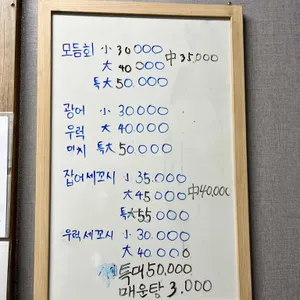 모듬회 小 30000 中 35,000
大 40000
특大 50.000
광어 小 30000
우럭 大 40000
미치 특大 50000
잡어세꼬시 小 35.000
大 45000 中40,000
특大 55 000
우럭세꼬시 小 30.000
大 40000
특대 50,000
매운탕 3.000